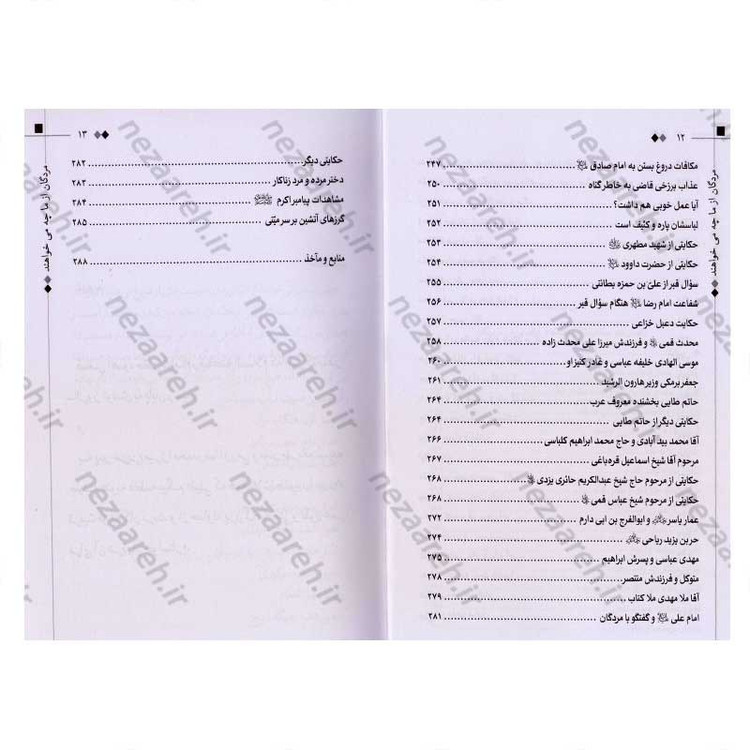 ۱۲
مردگان از ما چه می خواهند
مکافات دروغ بستن به امام صادق ........ ۲۴۷
عذاب برزخی قاضی به خاطر گناه ........ ۲۵۰
آیا عمل خوبی هم داشت؟ ........ ۲۵۱
لباسشان پاره و کثیف است ........ ۲۵۲
حکایتی از شهید مطهری ........ ۲۵۳
حکایتی از حضرت داوود ........ ۲۵۴
سؤال قبر از علیّ بن حمزه بطائنی ........ ۲۵۵
شفاعت امام رضا هنگام سؤال قبر ........ ۲۵۶
حکایت دعبل خزاعی ........ ۲۵۷
محدث قمی و فرزندش میرزا علی محدث زاده ........ ۲۵۸
موسی الهادی خلیفه عباسی و غادر کنیز او ........ ۲۶۰
جعفر برمکی وزیر هارون الرشید ........ ۲۶۱
حاتم طایی بخشنده معروف عرب ........ ۲۶۴
حکایتی دیگر از حاتم طایی ........ ۲۶۴
آقا محمد بید آبادی و حاج محمد ابراهیم کلباسی ........ ۲۶۶
مرحوم آقا شیخ اسماعیل قره‌باغی ........ ۲۶۷
حکایتی از مرحوم حاج شیخ عبدالکریم حائری یزدی ........ ۲۶۸
حکایتی از مرحوم شیخ عباس قمی ........ ۲۶۸
عمار یاسر و ابوالفرج بن ابی دارم ........ ۲۷۲
حر بن یزید ریاحی ........ ۲۷۴
مهدی عباسی و پسرش ابراهیم ........ ۲۷۵
متوکل و فرزندش منتصر ........ ۲۷۸
آقا ملا مهدی ملا کتاب ........ ۲۷۹
امام علی و گفتگو با مردگان ........ ۲۸۱
۱۳
مردگان از ما چه می خواهند
حکایتی دیگر ........ ۲۸۲
دختر مرده و مرد زناکار ........ ۲۸۳
مشاهدات پیامبر اکرم ........ ۲۸۴
گرزهای آتشین بر سر میّتی ........ ۲۸۵
منابع و مآخذ ........ ۲۸۸
nezaareh.ir